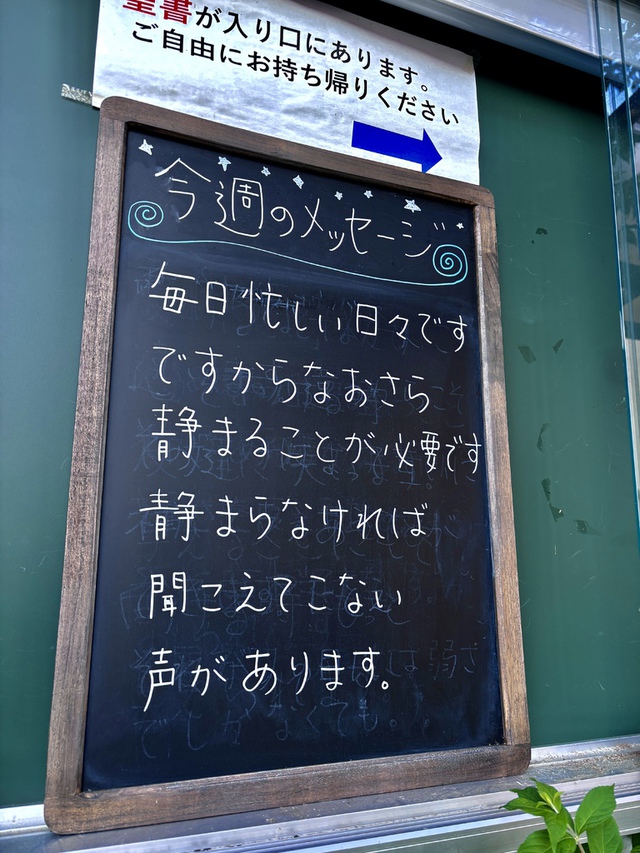 聖書が入り口にあります。
ご自由にお持ち帰りください
今週のメッセージ
毎日忙しい日々です
ですからなおさら
静まることが必要です
静まらなければ
聞こえてこない
声があります。